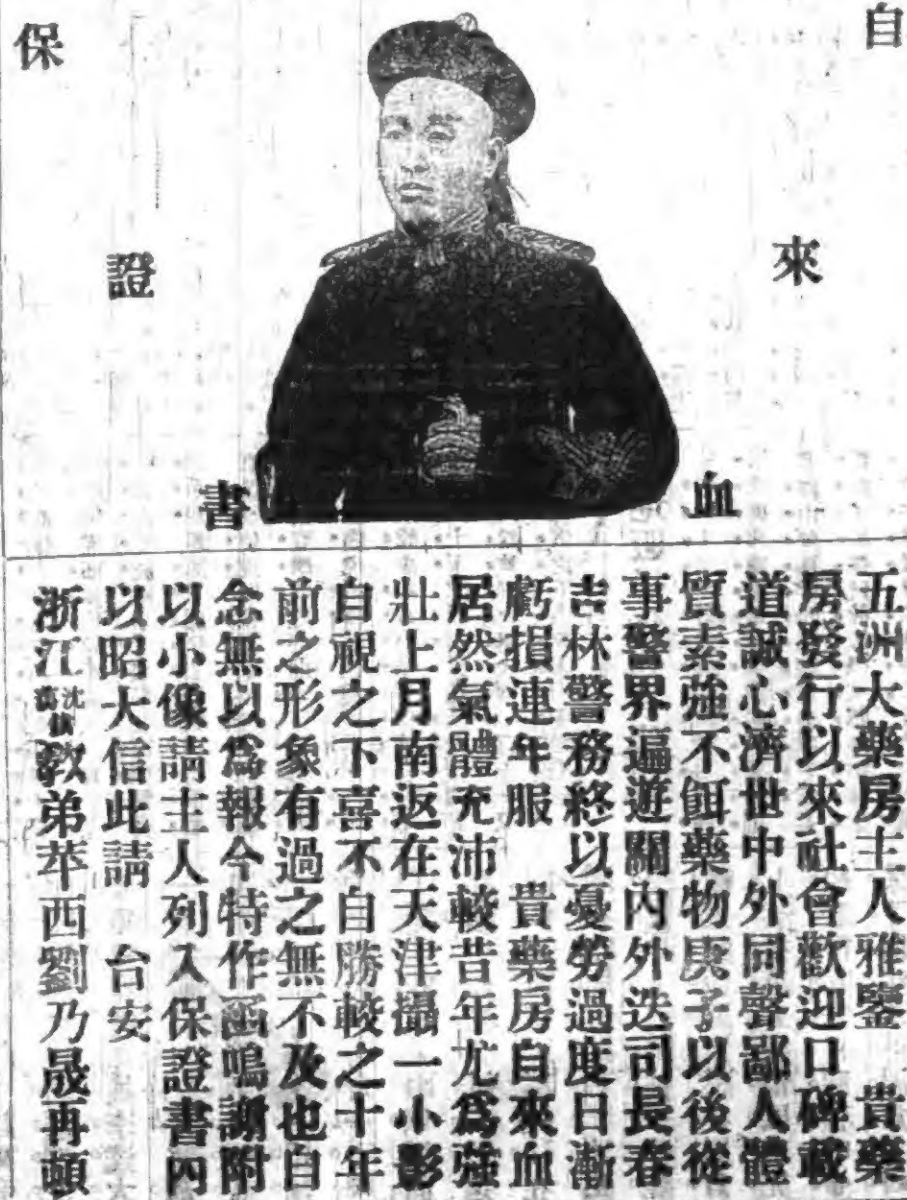 自來血
保證書
五洲大藥房主人雅鑒　貴藥
房發行以來社會歡迎口碑載
道誠心濟世中外同聲鄙人體
質素強不餌藥物庚子以後從
事警界遍遊關內外迭司長春
吉林警務終以憂勞過度日漸
虧損連年服　貴藥房自來血
居然氣體充沛較昔年尤爲強
壯上月南返在天津攝一小影
自視之下喜不自勝較之十年
前之形象有過之無不及也自
念無以爲報今特作函鳴謝附
以小像請主人列入保證書內
以昭大信此請　台安
浙江教弟萃西劉乃晟再頓